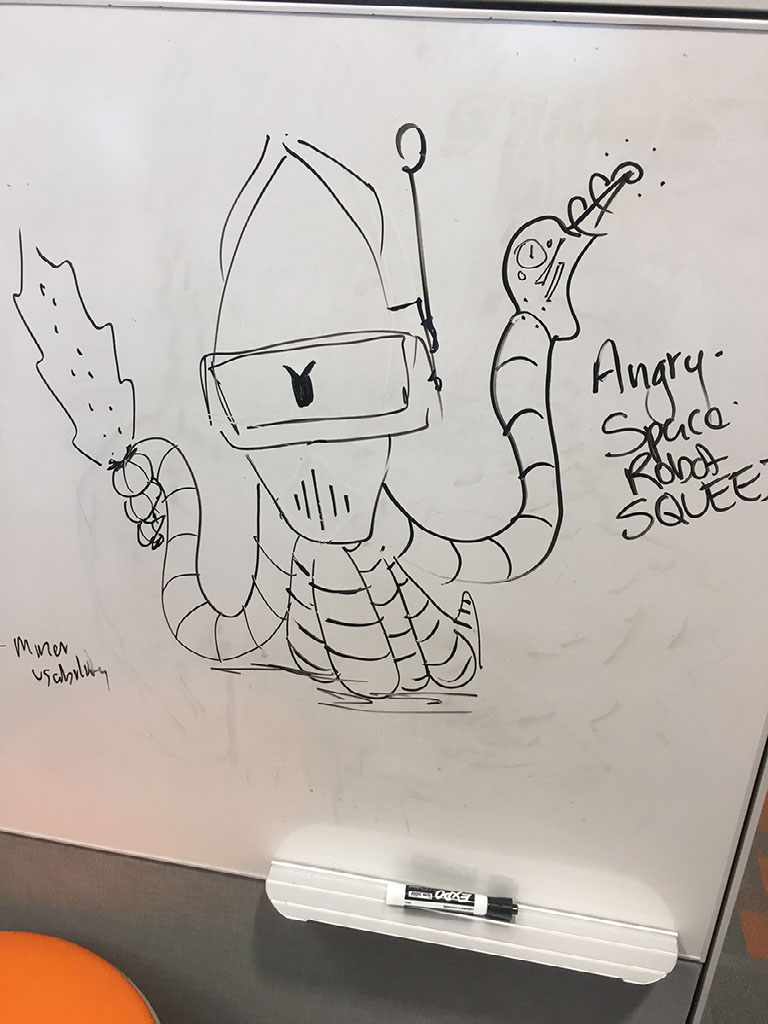 Angry.
Space.
Robot
SQUEE
Miner
usability
EXPO